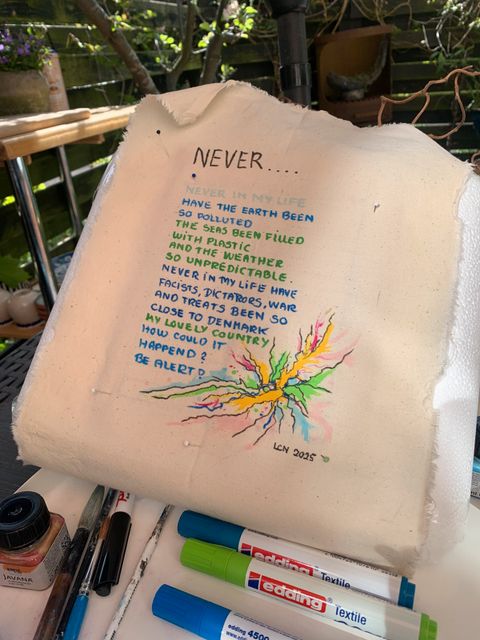 NEVER....
NEVER IN MY LIFE
HAVE THE EARTH BEEN
SO POLLUTED
THE SEAS BEEN FILLED
WITH PLASTIC
AND THE WEATHER
SO UNPREDICTABLE.
NEVER IN MY LIFE HAVE
FACISTS, DICTATORS, WAR
AND TREATS BEEN SO
CLOSE TO DENMARK
MY LOVELY COUNTRY
HOW COULD IT
HAPPEND?
BE ALERT
LCN 2025
JAVANA
edding Textile
edding Textile
edding 4500